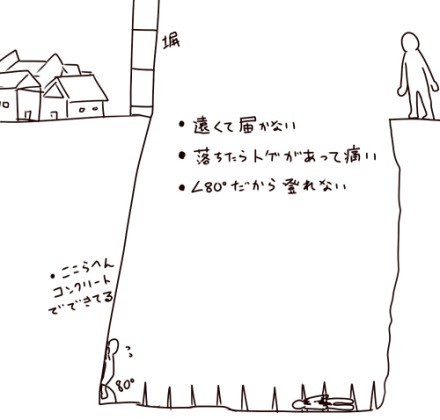 塀
• 遠くて届かない
• 落ちたらトゲがあって痛い
• ∠80°だから登れない
• ここらへん
コンクリート
でできてる
80°